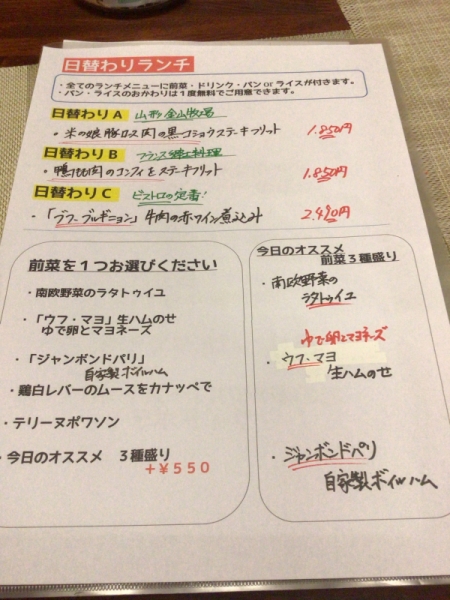 日替わりランチ
・全てのランチメニューに前菜・ドリンク・パン or ライスが付きます。
・パン・ライスのおかわりは１度無料でご用意できます。
日替わりA 山形 金山牧場
・米の娘豚ロス肉の黒コショウステーキフリット 1.850円
日替わりB フランス郷土料理
・鴨もも肉のコンフィをステーキフリット 1.850円
日替わりC ビストロの定番!
・「ブフ・ブルギニョン」牛肉の赤ワイン煮込み 2.490円
前菜を１つお選びください
・南欧野菜のラタトゥイユ
・「ウフ・マヨ」生ハムのせ
ゆで卵とマヨネーズ
・「ジャンボンドパリ」
自家製ボイルハム
・鶏白レバーのムースをカナッペで
・テリーヌポワソン
・今日のオススメ　３種盛り
＋¥５５０
今日のオススメ
前菜３種盛り
・南欧野菜の
ラタトゥイユ
ゆで卵とマヨネーズ
・ウフ・マヨ
生ハムのせ
・ジャンボンドパリ
自家製ボイルハム